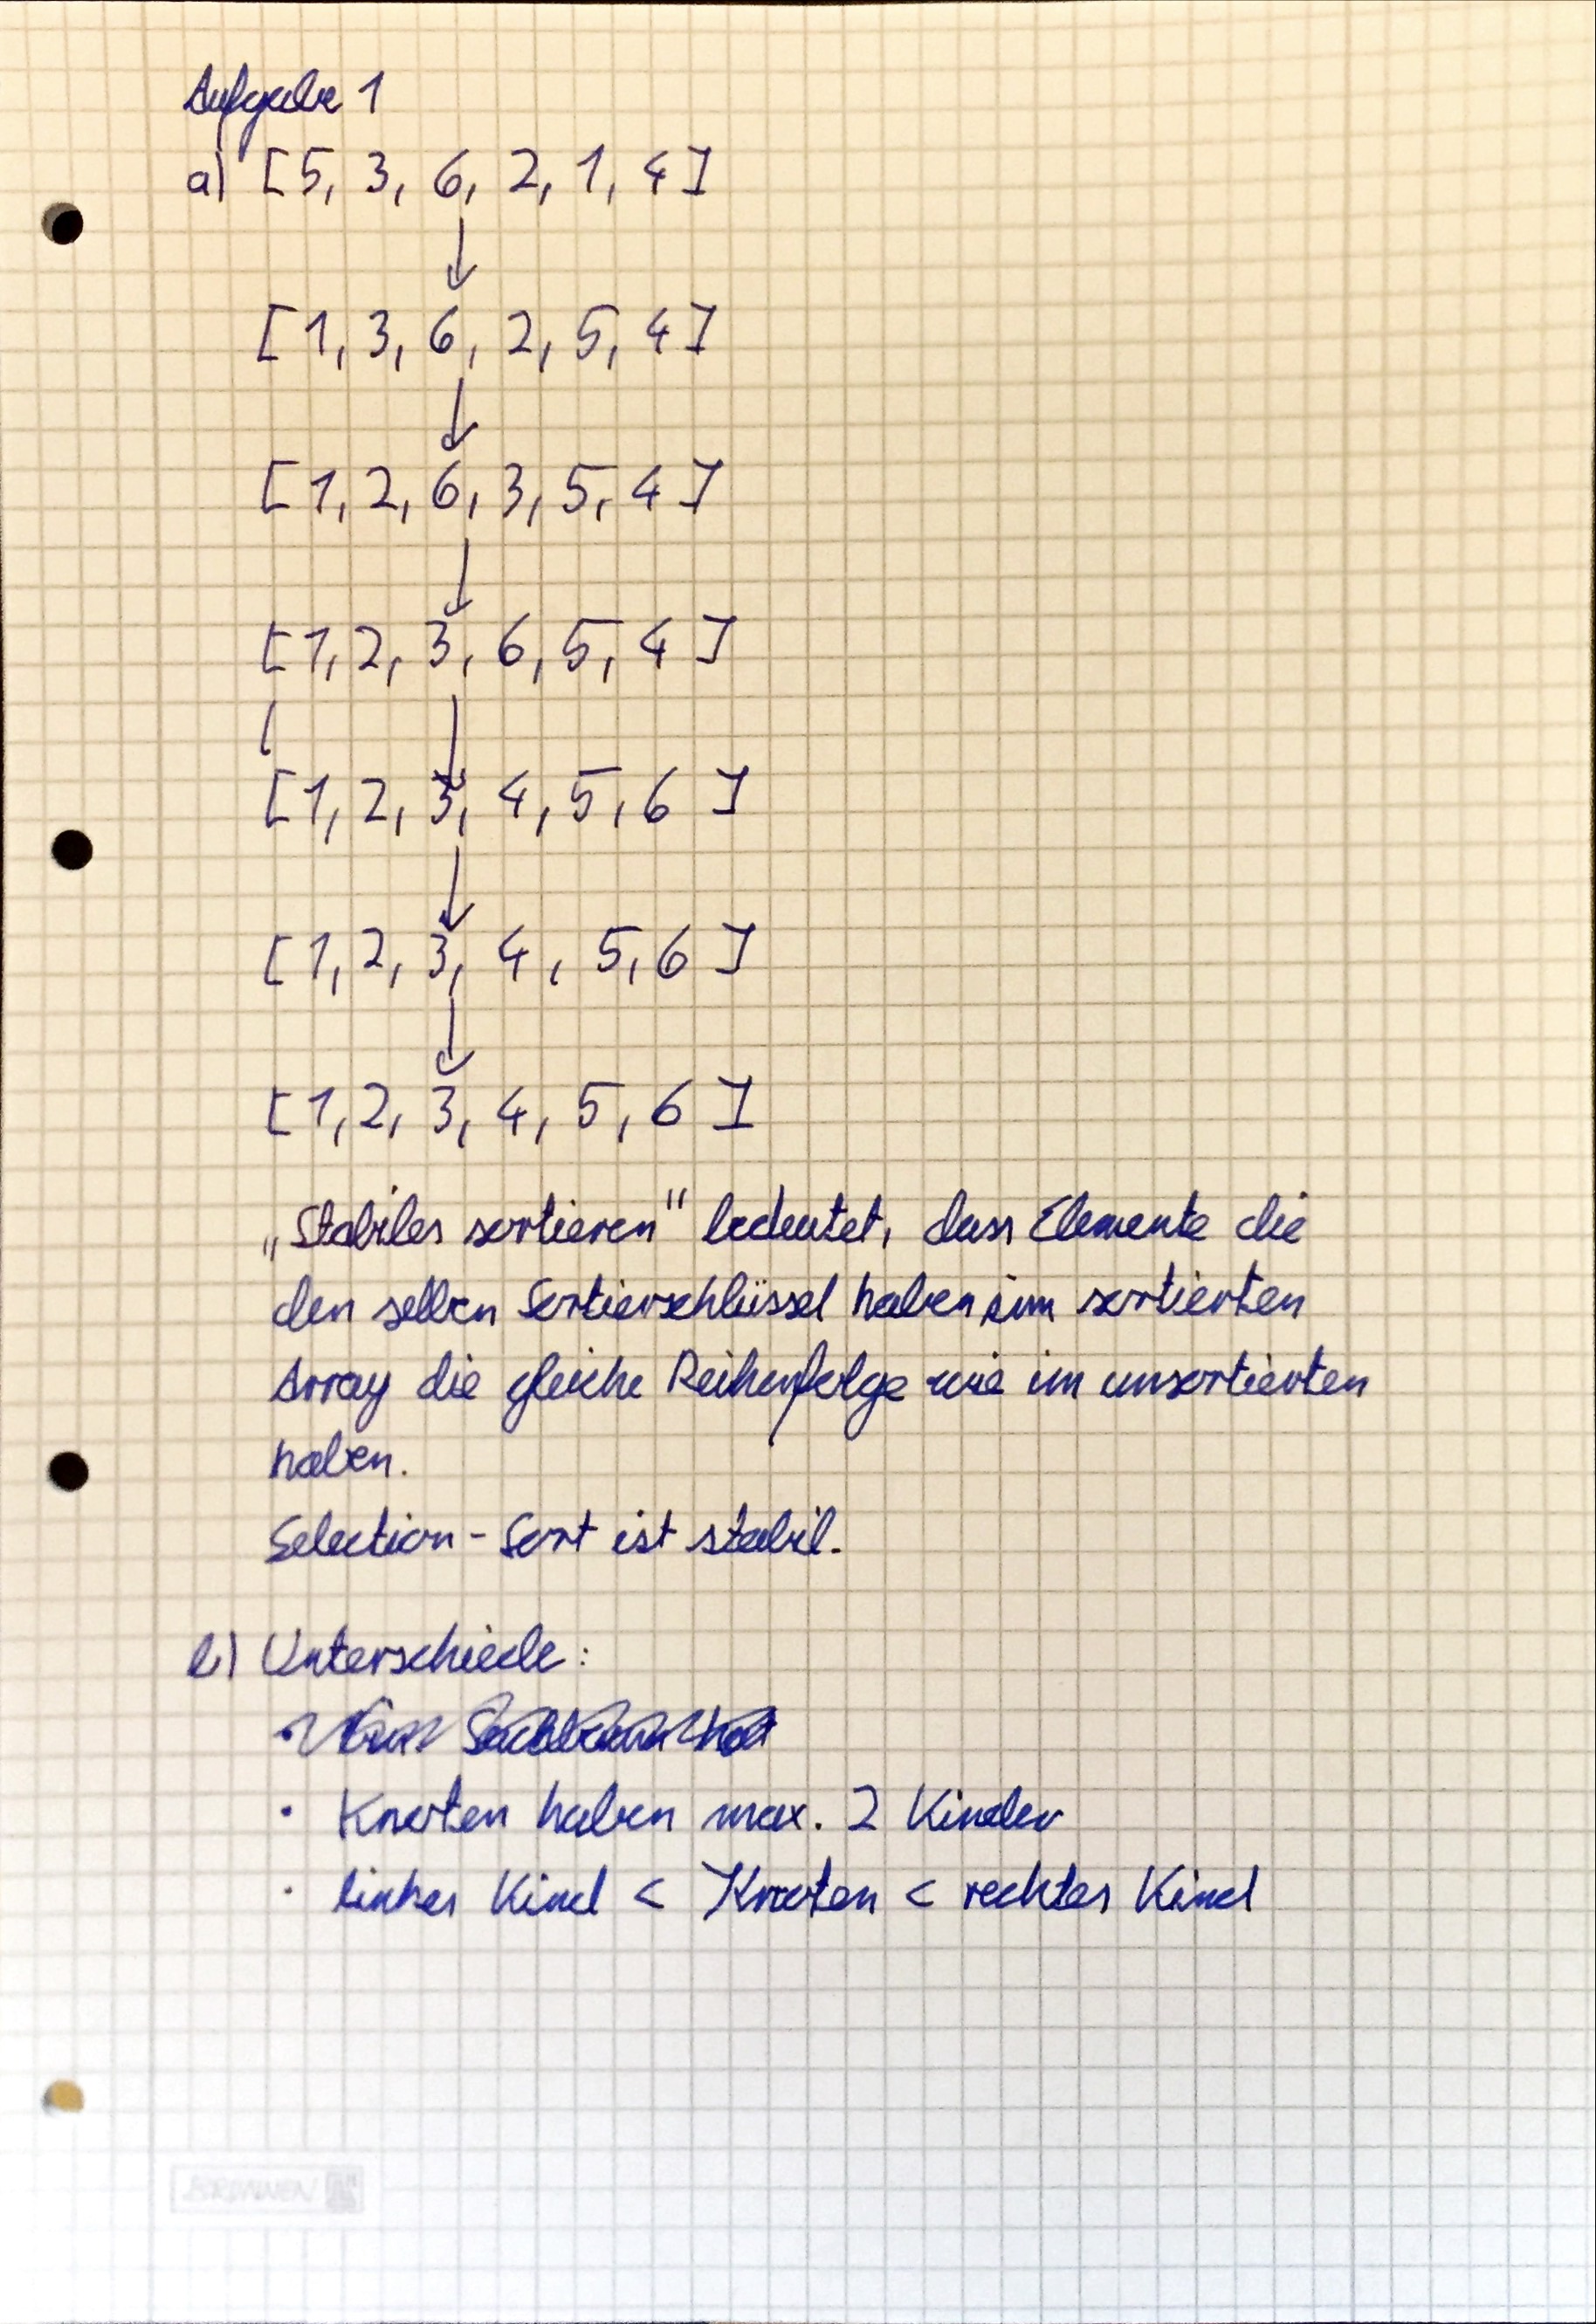 Aufgabe 1
a) [5, 3, 6, 2, 1, 4]
[1, 3, 6, 2, 5, 4]
[1, 2, 6, 3, 5, 4]
[1, 2, 3, 6, 5, 4]
[1, 2, 3, 4, 5, 6]
[1, 2, 3, 4, 5, 6]
[1, 2, 3, 4, 5, 6]
„Stabiles sortieren" bedeutet, dass Elemente die
den selben Sortierschlüssel haben im sortierten
Array die gleiche Reihenfolge wie im unsortierten
haben.
Selection-Sort ist stabil.
b) Unterschiede:
• Knoten haben max. 2 Kinder
• linkes Kind < Knoten < rechtes Kind
BRUNNEN